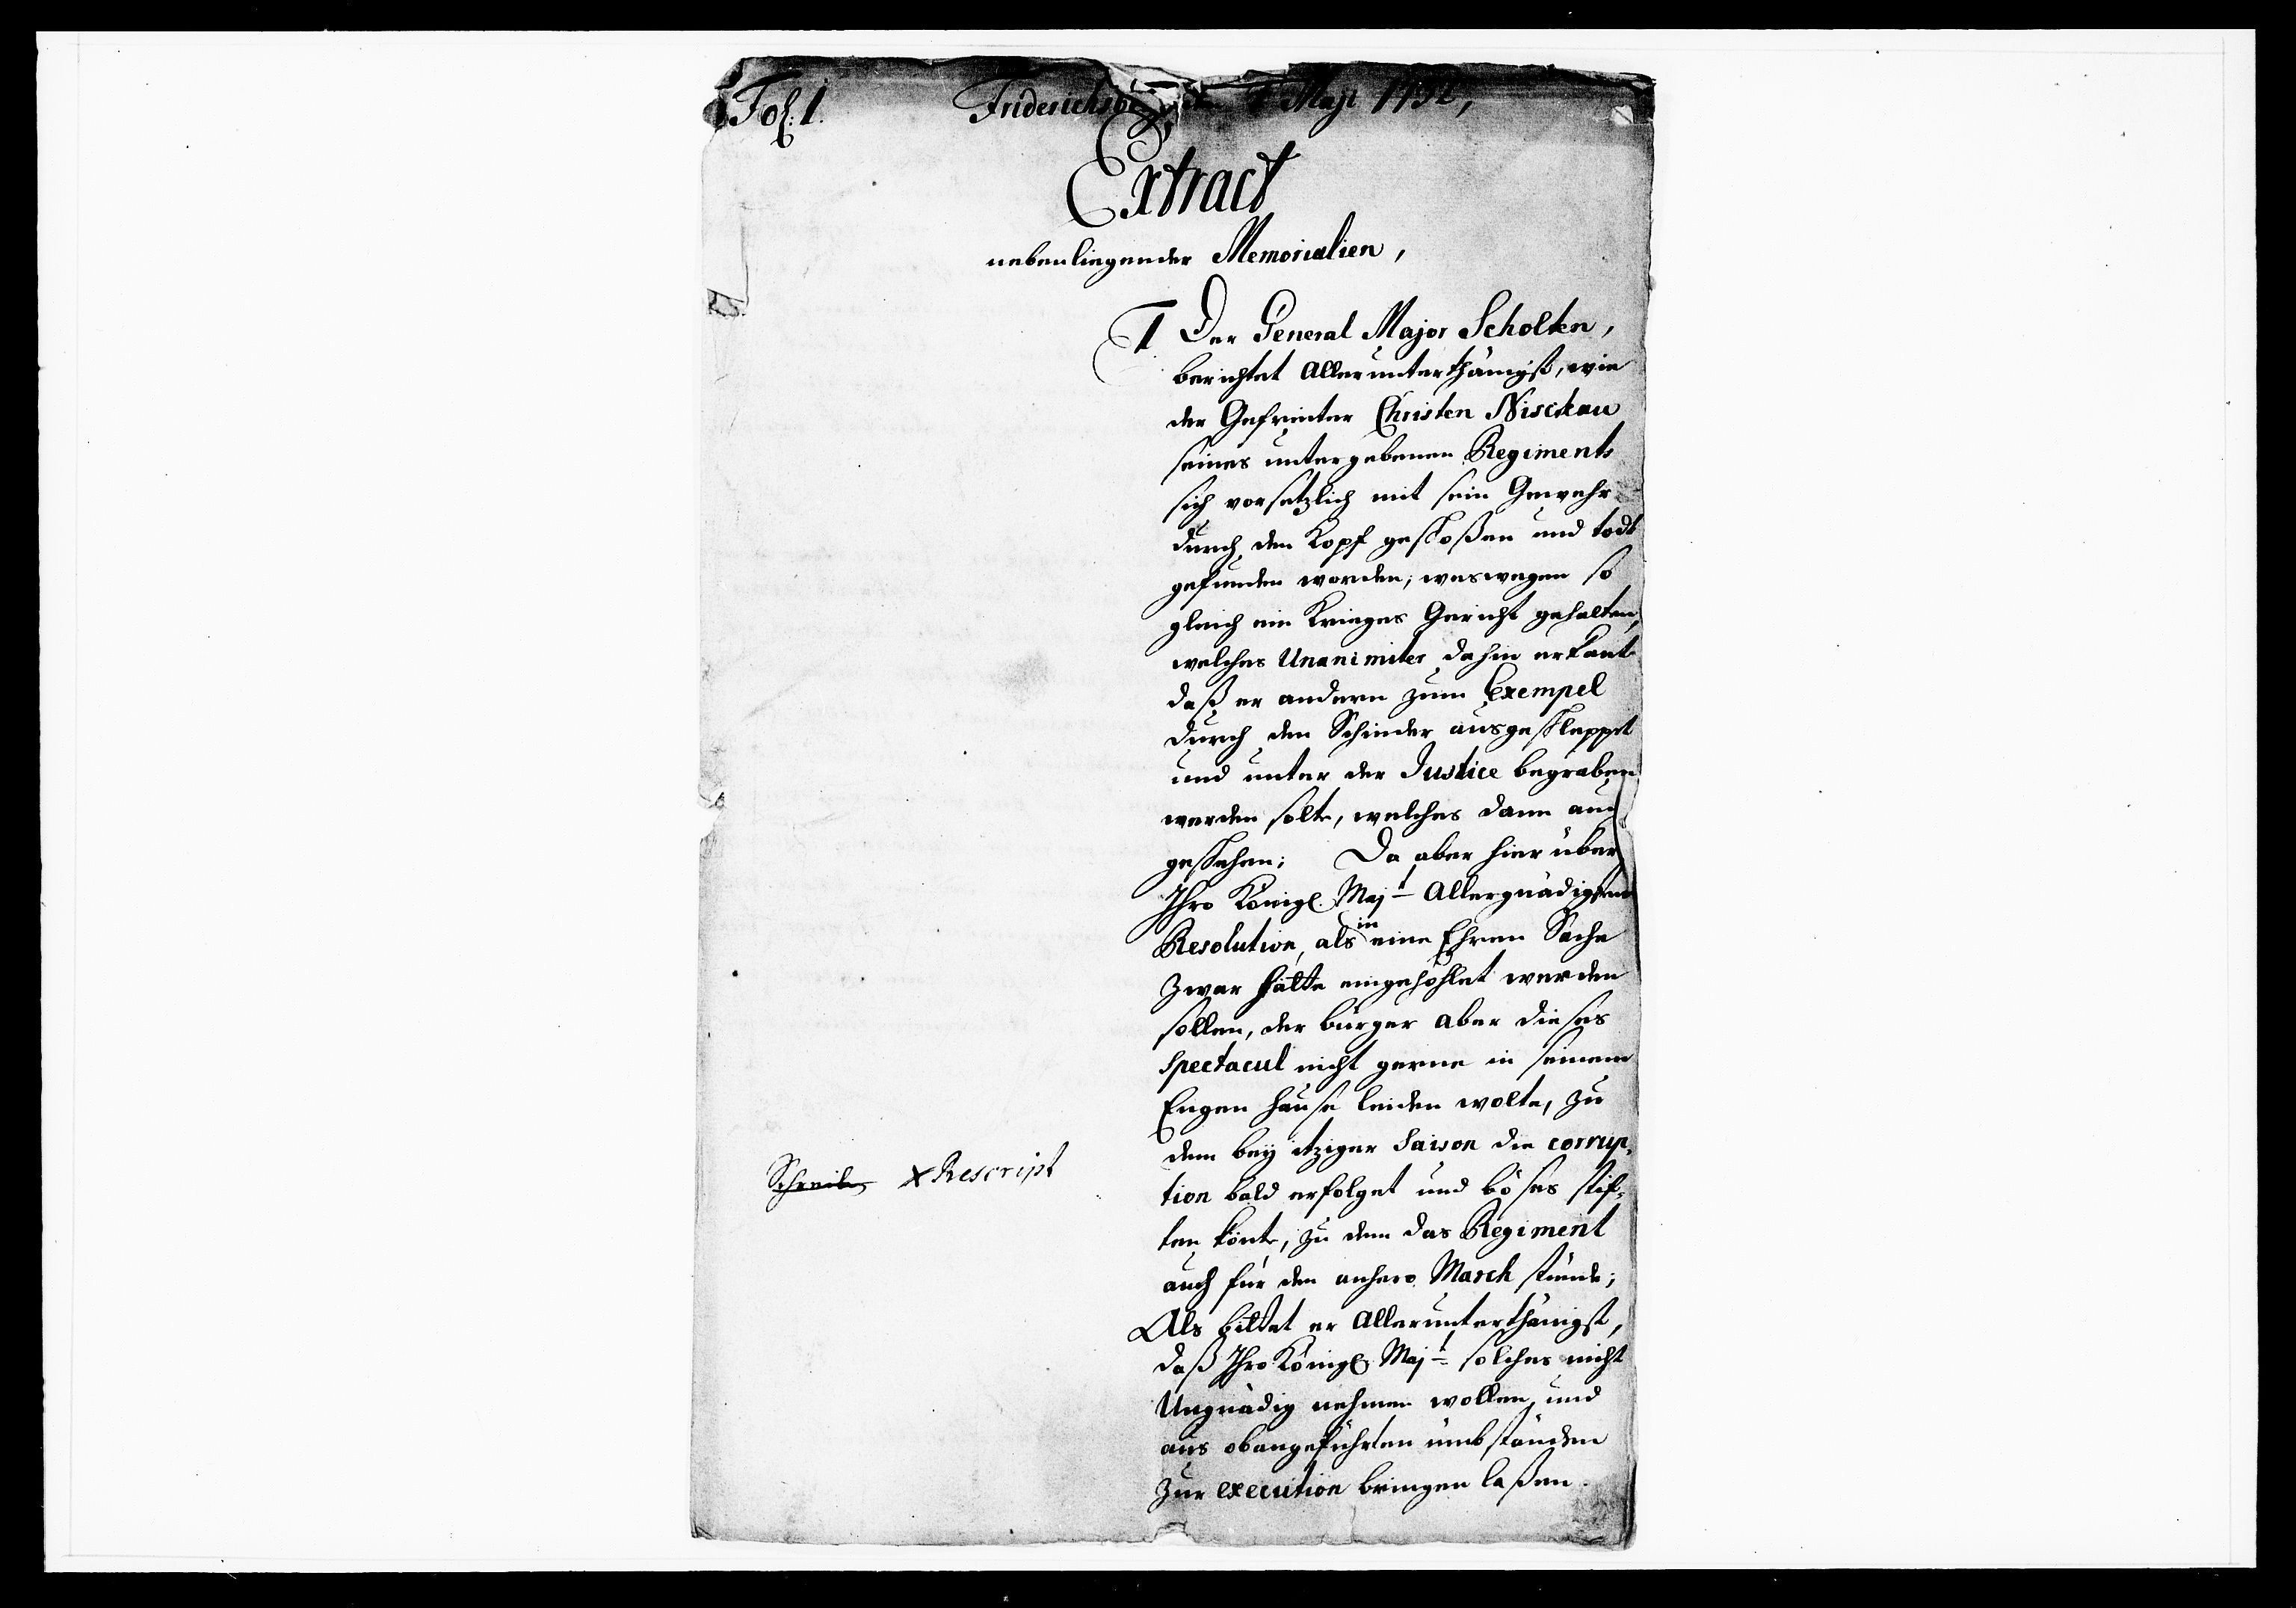 Fol: 1. Friderichsbg den Maji 1732,
Extract
nebenliegender Memorialien,
1 Der General Major Scholten,
berichtet Allerunterthänigst, wie
der Gefreüter Christen Nisckau
seines untergebenen Regiments
sich vorsetzlich mit sein Gewehr
durch den Kopf geschoßen und todt
gefunden worden; weswegen so
gleich ein Krieges Gericht gehalten,
welches Unanimiter dahin erkant
daß er andern zum Exempel
durch den Schinder ausgeschleppet
und unter der Justice begraben
werden solte, welches dann auch
geschehen; Da aber hier über
Ihro Königl. Majt Allergnädigsten
Resolution, als in eine Ehren Sache
zwar hätte eingehohlet werden
sollen, der bürger aber dieses
Spectacul nicht gerne in seinem
Eygen hause leiden wolte, zu
dem bey itziger Saison die corrup-
tion bald erfolget und böses stif-
ten könte, zu dem das Regiment
auch für den anhero March stünde;
Als bittet er Allerunterthänigst,
daß Ihro Königl. Majt solches nicht
Ungnädig nehmen wollen, und
aus obangeführten umbständen
zur execution bringen laßen.
Schreiben x Rescript